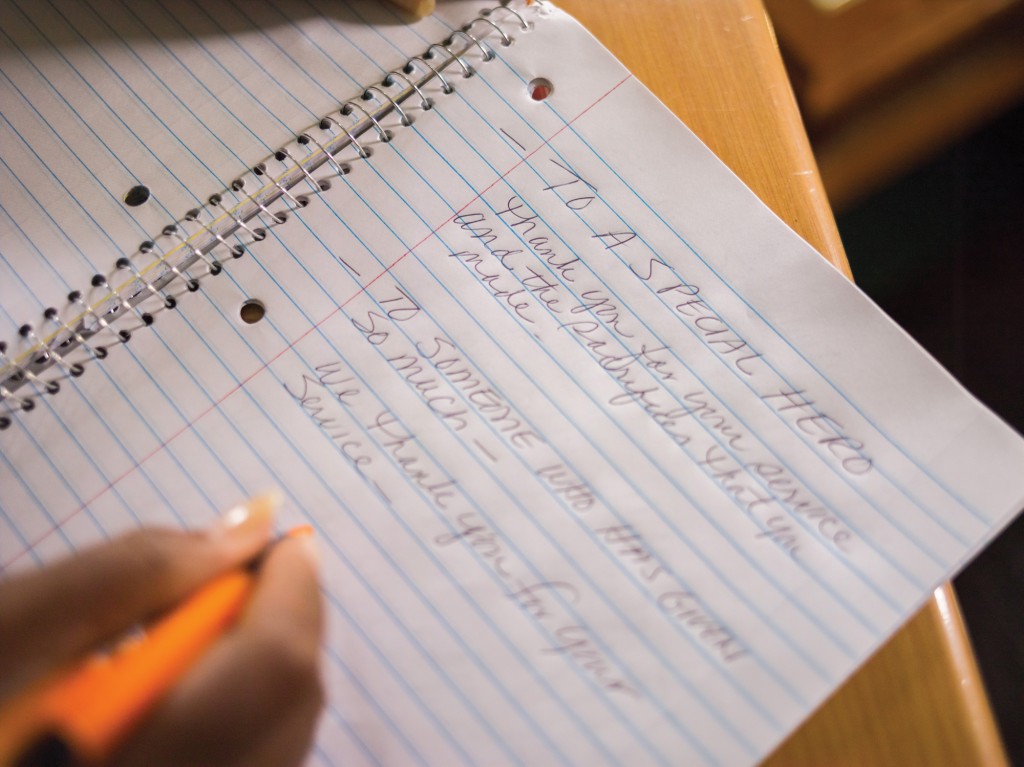 - TO A SPECIAL HERO
Thank you for your service
and the sacrifices that you
made.
- TO SOMEONE WHO HAS GIVEN
SO MUCH -
We thank you for your
Service -